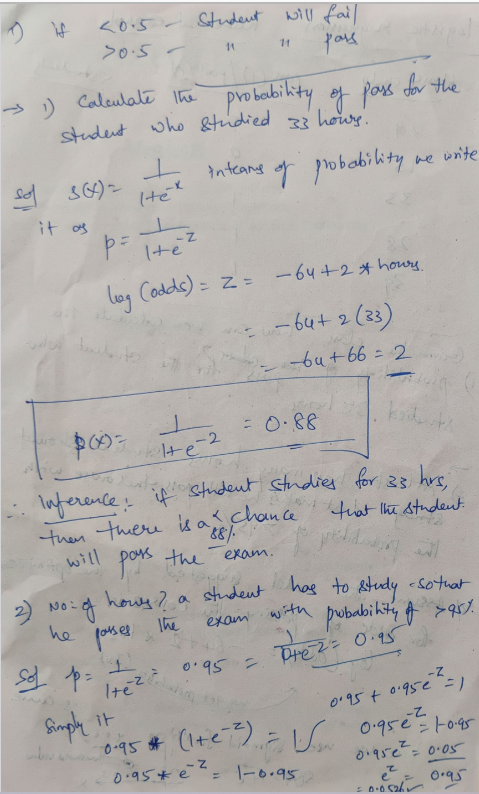 1) if <0.5 - Student will fail
>0.5 - " " pass
→ 1) Calculate the probability of pass for the
student who studied 33 hours.
Sol S(x) = 1/(1+e^-x) intearms of probability we write
it as p = 1/(1+e^-z)
log (odds) = z = -64+2 * hours.
= -64+ 2(33)
= -64+66 = 2
p(x) = 1/(1+e^-2) = 0.88
∴ Inference :- if student studies for 33 hrs,
then there is a 88% chance that the student
will pass the exam.
2) No: of hours? a student has to study so that
he passes the exam with probability of >95%.
Sol p = 1/(1+e^-z) = 0.95 = 1/(1+e^-z) = 0.95
Simply it
0.95 * (1+e^-z) = 1
0.95 * e^-z = 1-0.95
0.95 + 0.95e^-z = 1
0.95e^-z = 1-0.95
0.95e^-z = 0.05
e^-z = 0.95
= 0.052